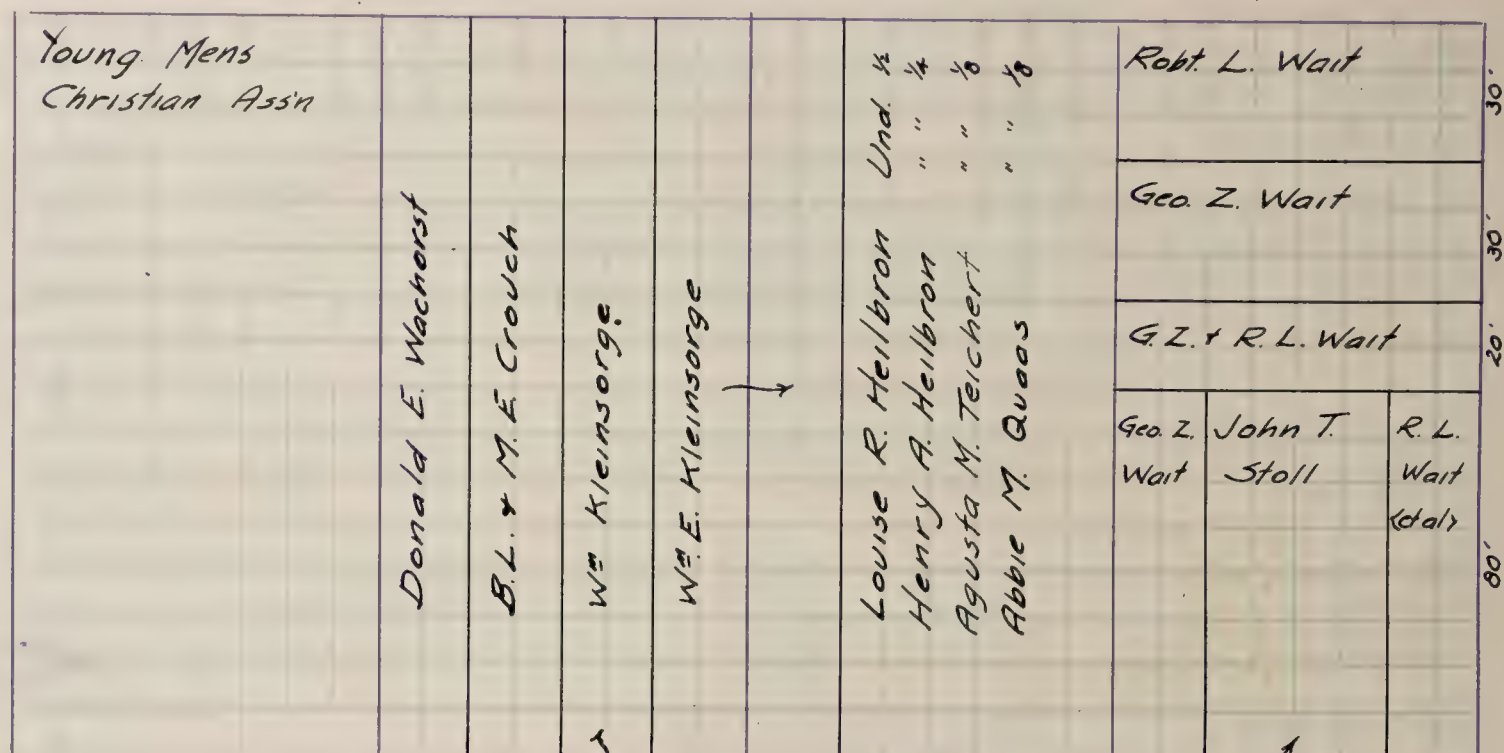 Young Mens
Christian Ass'n
Donald E. Wachorst
B.L. & M.E. Crouch
Wm Kleinsorge
Wm E. Kleinsorge
Louise R. Heilbron Und. 1/2
Henry A. Heilbron " " 1/4
Agusta M. Teichert " " 1/8
Abbie M. Quaas " " 1/8
Robt. L. Wait
30'
Geo. Z. Wait
30'
G.Z. & R.L. Wait
20'
Geo. Z.
Wait
John T.
Stoll
R. L.
Wait
(et al)
80'